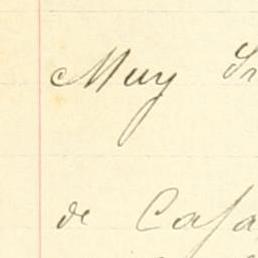 Muy Sr
de Casa